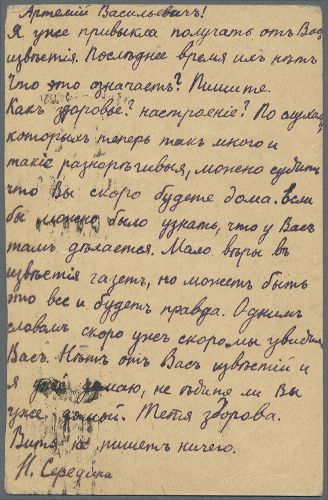 Артемій Васильевичъ!
Я уже привыкла получать отъ Васъ
извѣстія. Послѣднее время ихъ нѣтъ
Что это означаетъ? Пишите.
Какъ здоровье? настроеніе? По слухамъ
которыхъ теперь такъ много и
такіе разнорѣчивыя, можно судить
что Вы скоро будете дома. Если
бы можно было узнать, что у Васъ
тамъ дѣлается. Мало вѣры въ
извѣстія газетъ, но можетъ быть
это все и будетъ правда. Однимъ
словомъ скоро ужъ скоро мы увидимъ
Васъ. Нѣтъ отъ Васъ извѣстій и
я уже думаю, не ѣдите ли Вы
уже домой. Тетя здорова.
Витя не пишетъ ничего.
Н. Середина